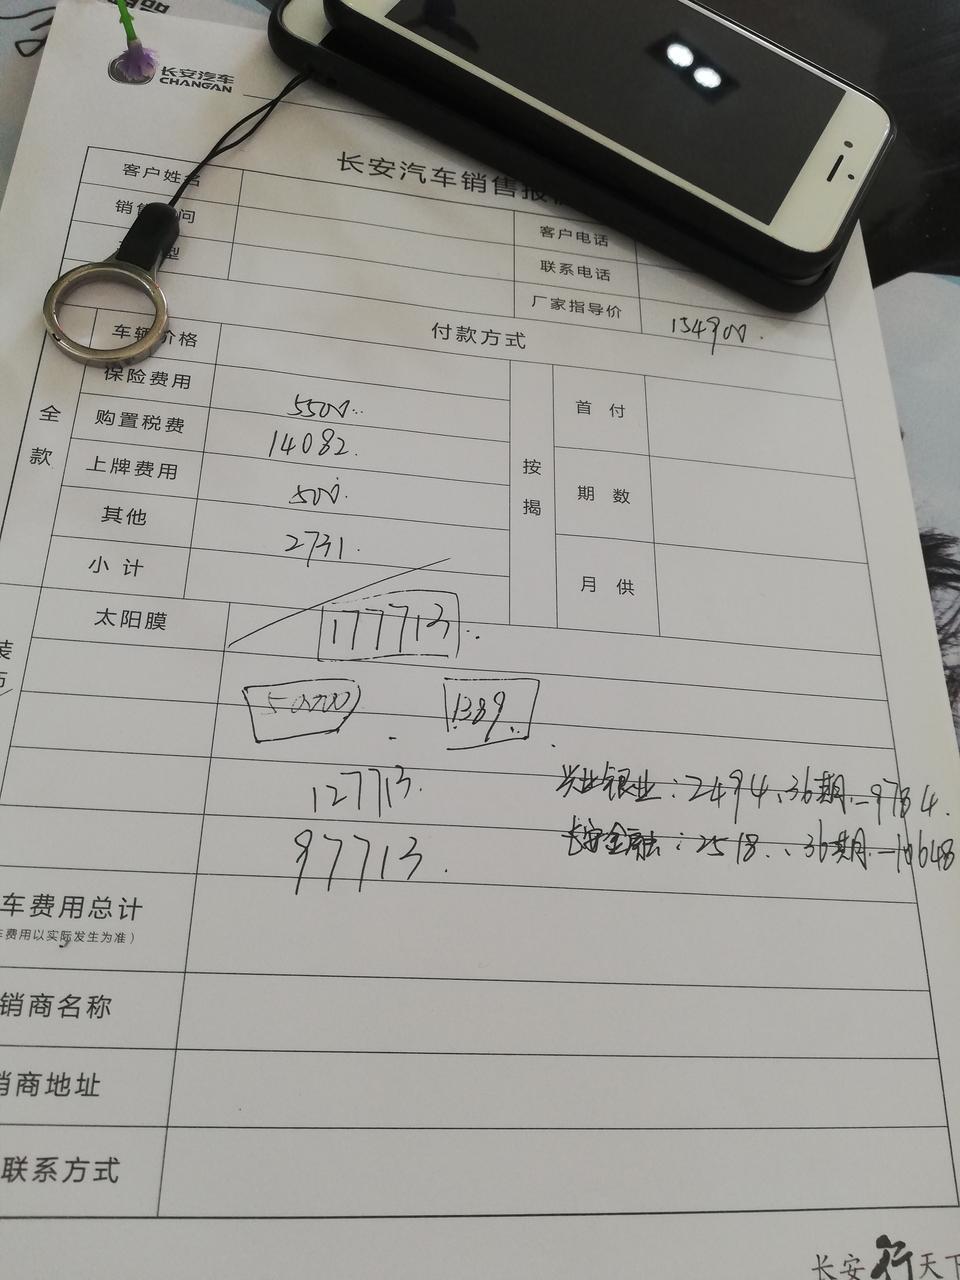 长安汽车
CHANGAN
长安汽车销售报
客户姓名
销售 问
客户电话
型
联系电话
厂家指导价 154900.
付款方式
全款
车辆价格
保险费用 5500
购置税费 14082.
上牌费用 500.
其他 2731.
小计
按揭
首付
期数
月供
177713
太阳膜
50000 1389
127713.
兴业银业:2494.36期.-9784.
97713.
长安金融:2518.36期.-10648
车费用总计
车费用以实际发生为准)
销商名称
销商地址
联系方式
长安行天下